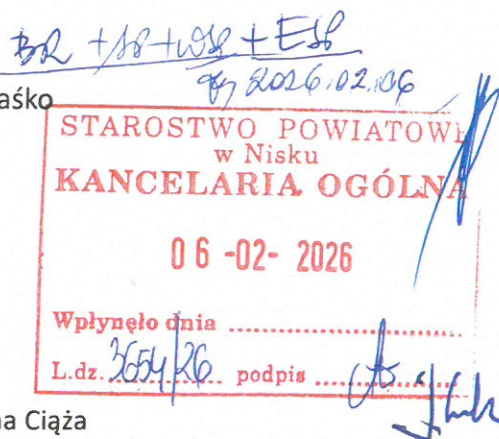 BR + SP + WSP + ESP
2026.02.06
aśko
STAROSTWO POWIATOWE
w Nisku
KANCELARIA OGÓLNA
06 -02- 2026
Wpłynęło dnia ..............................
L.dz. 3654/26 podpis ..............
na Ciąża